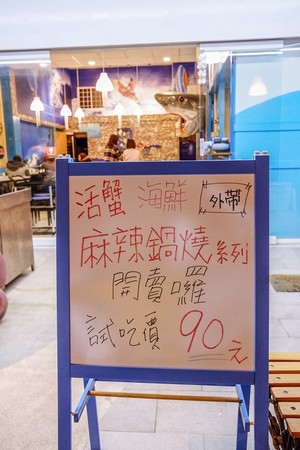 活蟹 海鮮 外帶
麻辣鍋燒系列
開賣囉
試吃價 90元